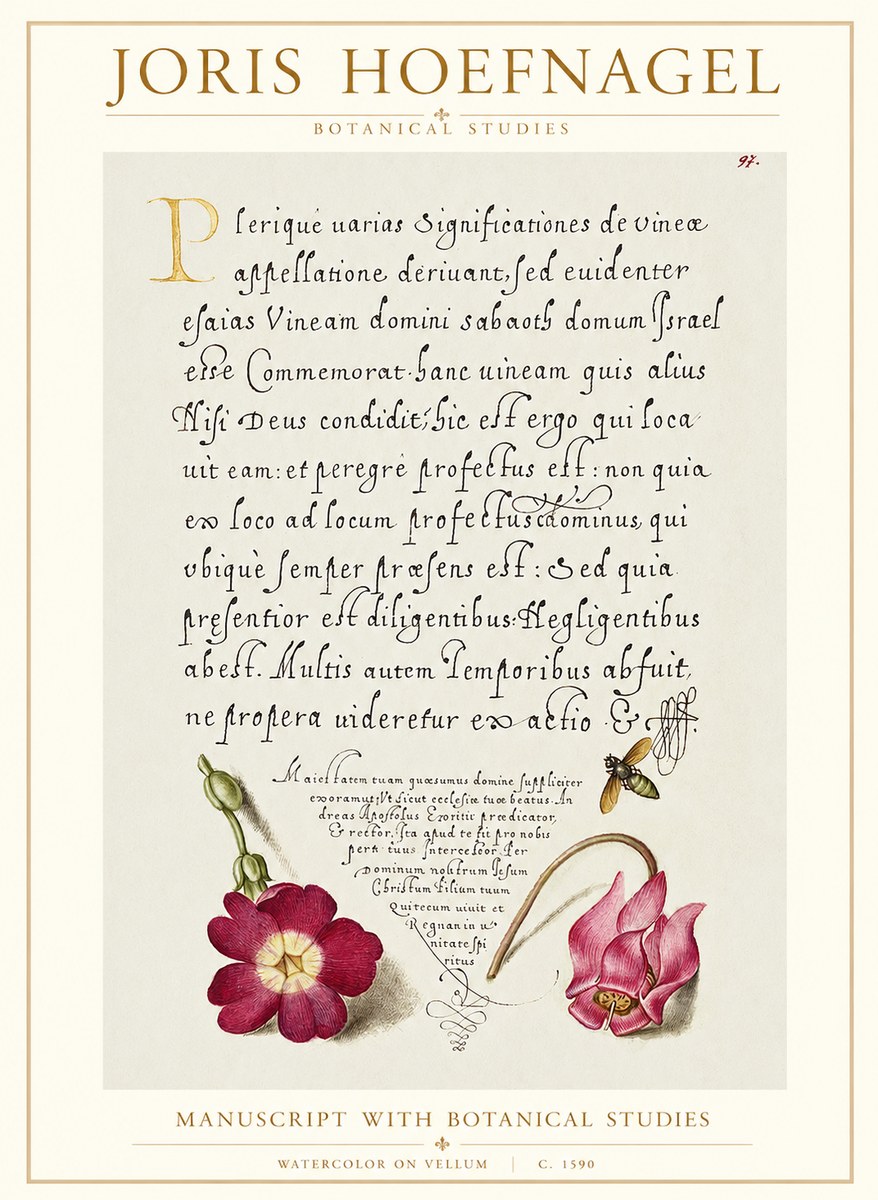 JORIS HOEFNAGEL
BOTANICAL STUDIES
97.
Plerique uarias Significationes de vineæ
appellatione deriuant, sed euidenter
esaias Vineam domini sabaoth domum Israel
esse Commemorat. hanc uineam quis alius
Nisi Deus condidit; hic est ergo qui loca
uit eam: et peregrè profectus est: non quia
ex loco ad locum profectus dominus, qui
vbiquè semper præsens est: Sed quia
pręsentior est diligentibus: Negligentibus
abest. Multis autem Temporibus abfuit,
ne propera uideretur exactio &
Maiestatem tuam quæsumus domine suppliciter
exoramus, Vt sicut ecclesiæ tuæ beatus An
dreas Apostolus Exoritir prædicator,
& rector, Ita apud te sit pro nobis
perpetuus Intercessor. Per
Dominum nostrum Iesum
Christum Filium tuum
Qui tecum uiuit et
Regnan in u
nitate spi
ritus
MANUSCRIPT WITH BOTANICAL STUDIES
WATERCOLOR ON VELLUM | C. 1590